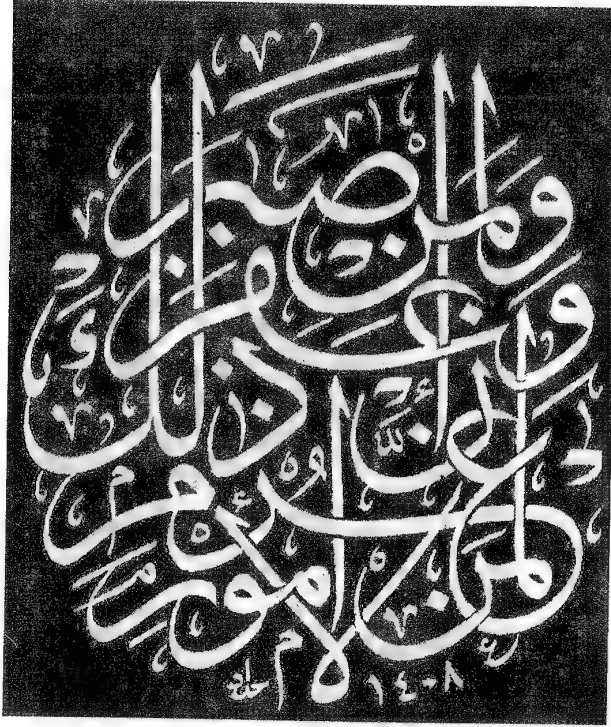 وَلَمَنْ صَبَرَ
وَغَفَرَ
إِنَّ ذَلِكَ
لَمِنْ عَزْمِ
الْأُمُورِ
١٤٠٨